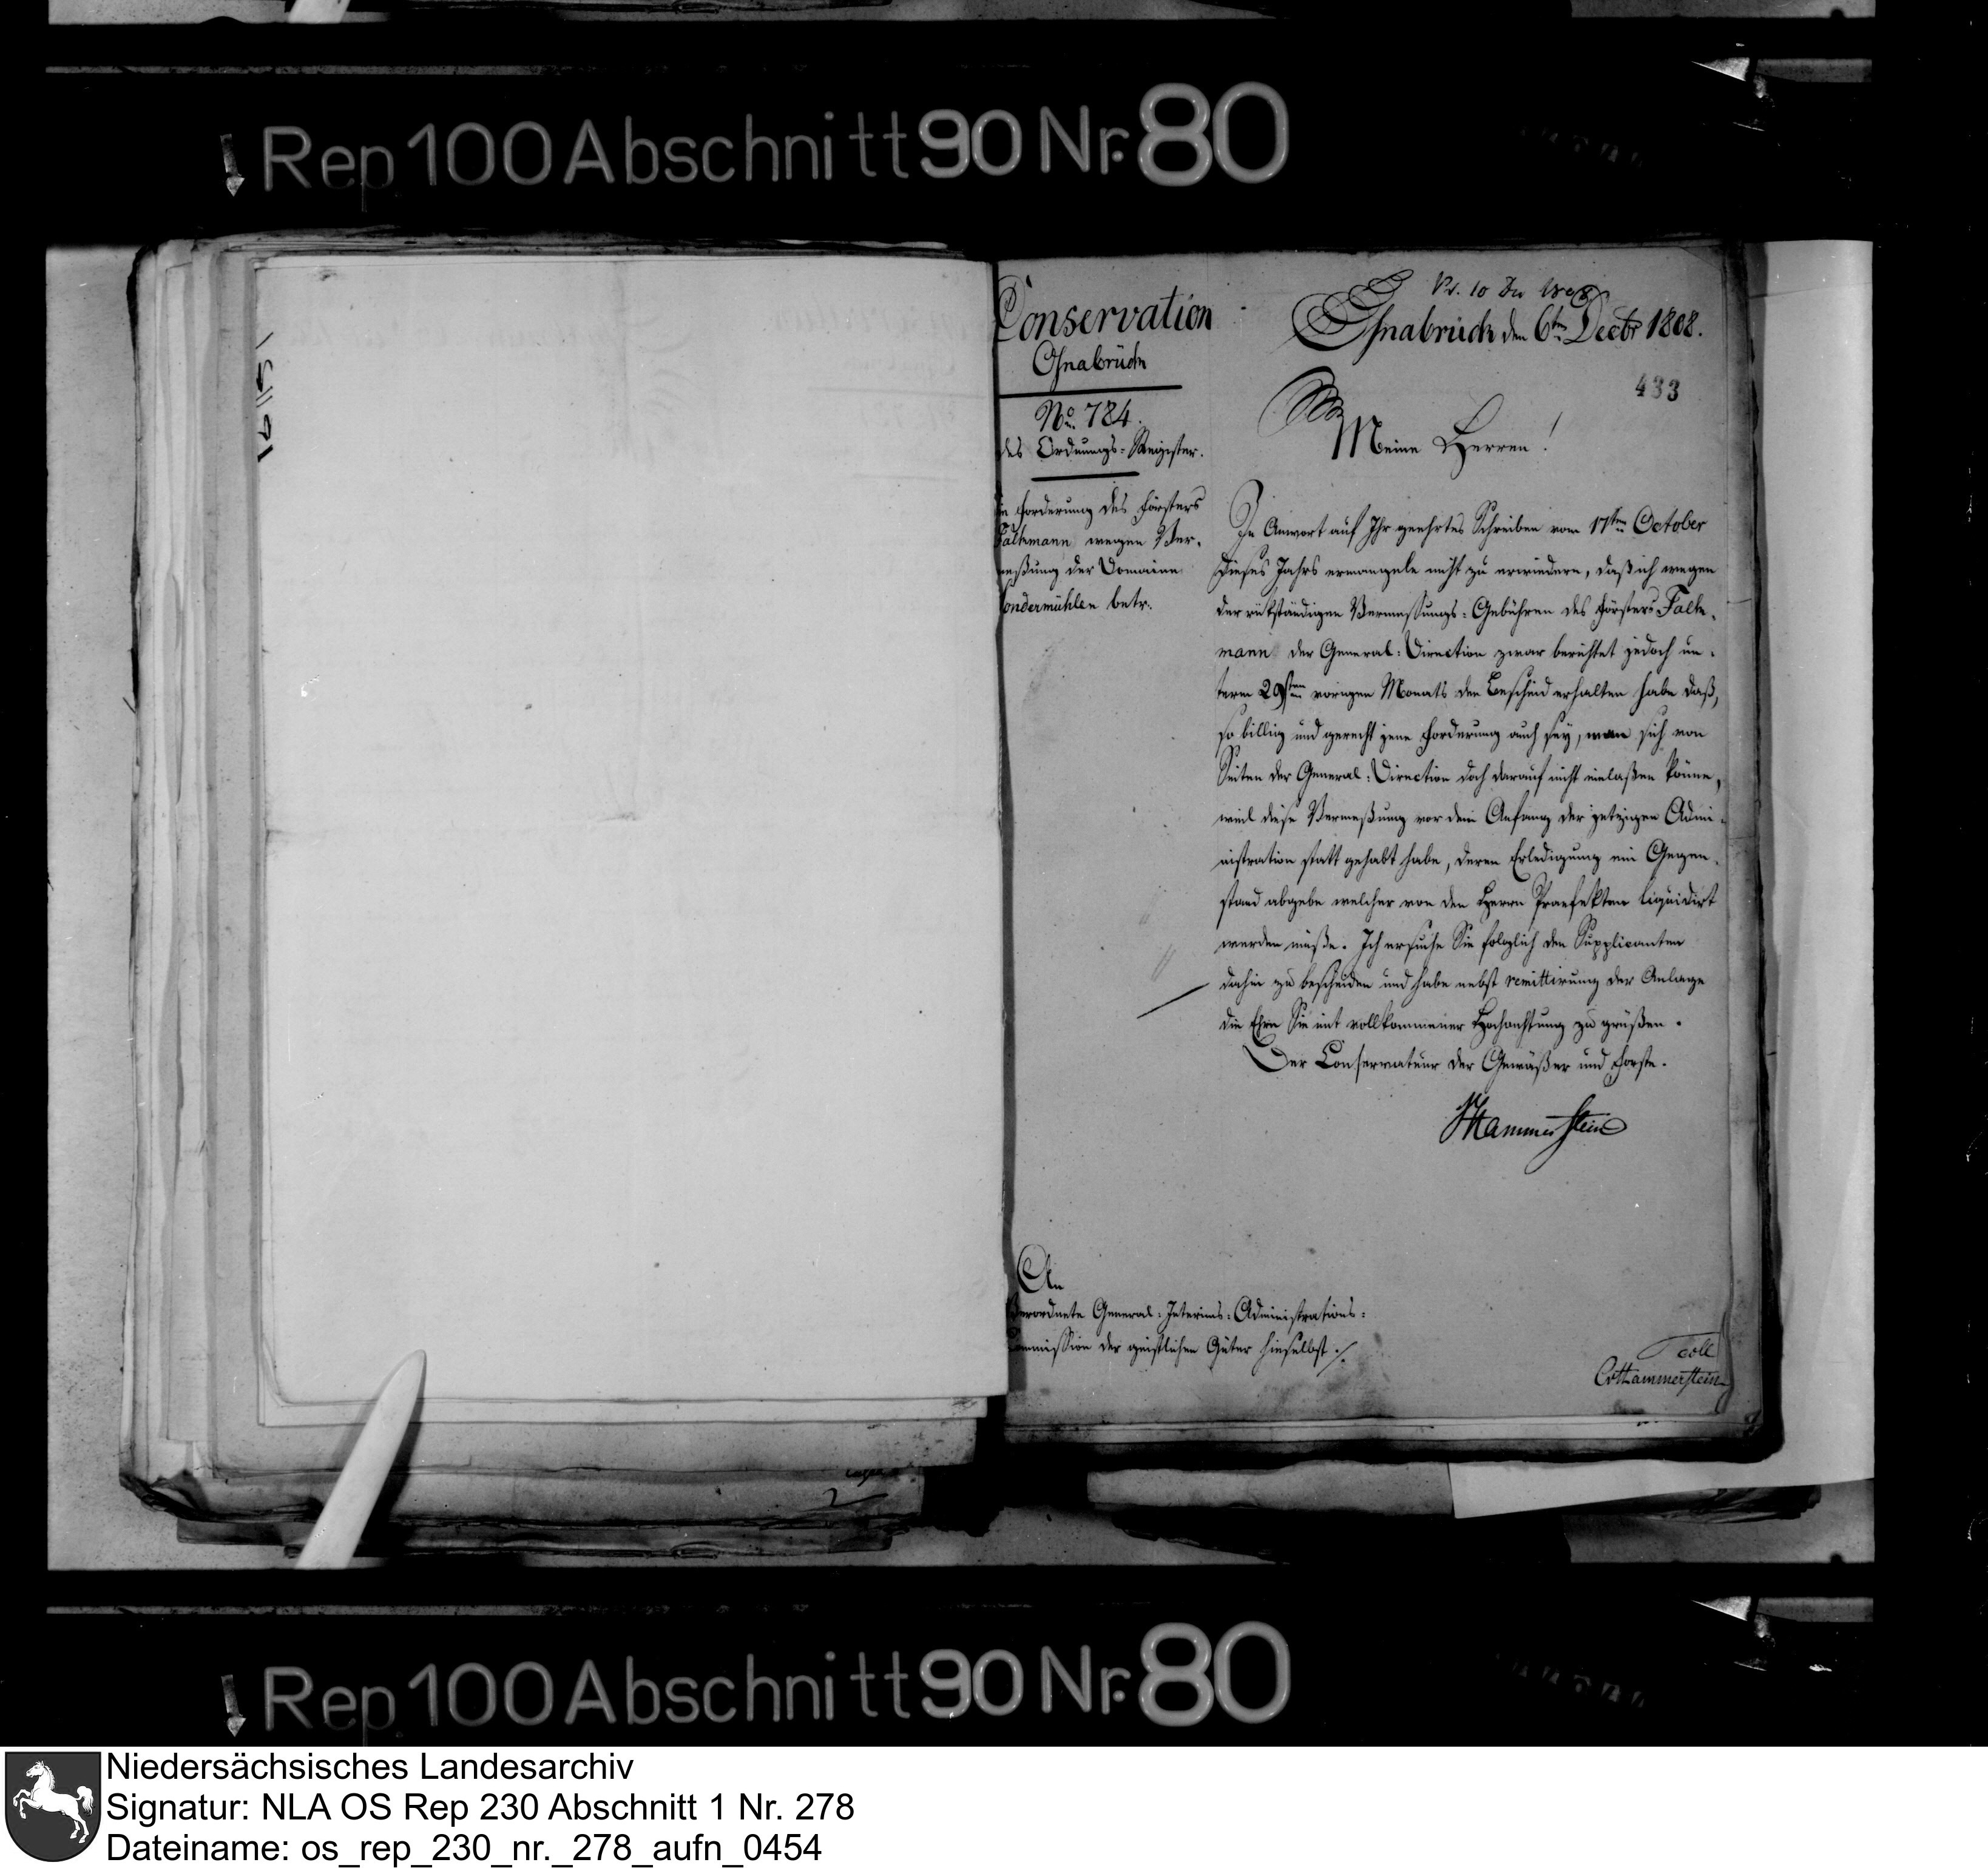 Rep 100 Abschnitt 90 Nr. 80
Conservation
Osnabrück
No. 784.
des Ordnungs-Register.
Die Forderung des Försters
Falkmann wegen Ver-
meßung der Domaine
Sondermühlen betr.
Pr. 10 Dec 1808
Osnabrück den 6ten Decbr 1808.
433
Meine Herren!
In Anwort auf Ihr geehrtes Schreiben vom 17ten October
dieses Jahrs ermangele nicht zu erwiedern, daß ich wegen
der rükständigen Vermessungs-Gebühren des Försters Falk-
mann der General-Direction zwar berichtet jedoch un-
term 29sten vorigen Monats den Bescheid erhalten habe daß,
so billig und gerecht jene Forderung auch sey, man sich von
Seiten der General-Direction doch darauf nicht einlaßen könne,
weil diese Vermeßung vor dem Anfang der jetzigen Admi-
nistration statt gehabt habe, deren Erledigung ein Gegen-
stand abgebe welcher von den Herrn Praefekten liquidirt
werden müße. Ich ersuche Sie folglich den Supplicanten
dahin zu bescheiden und habe nebst remittirung der Anlage
die Ehre Sie mit vollkommener Hochachtung zu grüßen.
Der Conservateur der Gewäßer und Forste.
Hammerstein
An
Verordnete General-Interims-Administrations-
Commission der geistlichen Güter hieselbst ./.
coll
CvHammerstein
Rep 100 Abschnitt 90 Nr. 80
Niedersächsisches Landesarchiv
Signatur: NLA OS Rep 230 Abschnitt 1 Nr. 278
Dateiname: os_rep_230_nr._278_aufn_0454